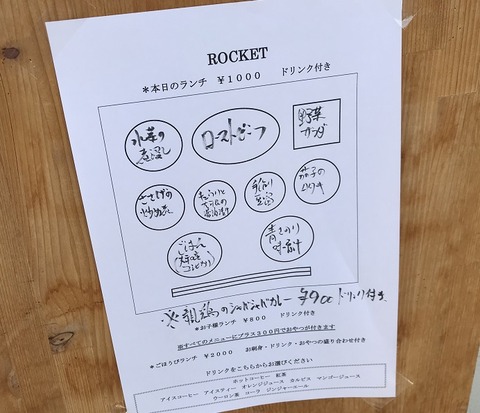 ROCKET
＊本日のランチ ￥１０００ ドリンク付き
ローストビーフ
野菜
サラダ
青さのり
味噌汁
ごはん
※親鶏のシャバシャバカレー ￥900 ドリンク付き
＊お子様ランチ ￥８００ ドリンク付き
※すべてのメニューにプラス３００円でおやつが付きます
＊ごほうびランチ ￥２０００ お刺身・ドリンク・おやつの盛り合わせ付き
ドリンクをこちらからお選びください
ホットコーヒー 紅茶
アイスコーヒー アイスティー オレンジジュース カルピス マンゴージュース
ウーロン茶 コーラ ジンジャーエール